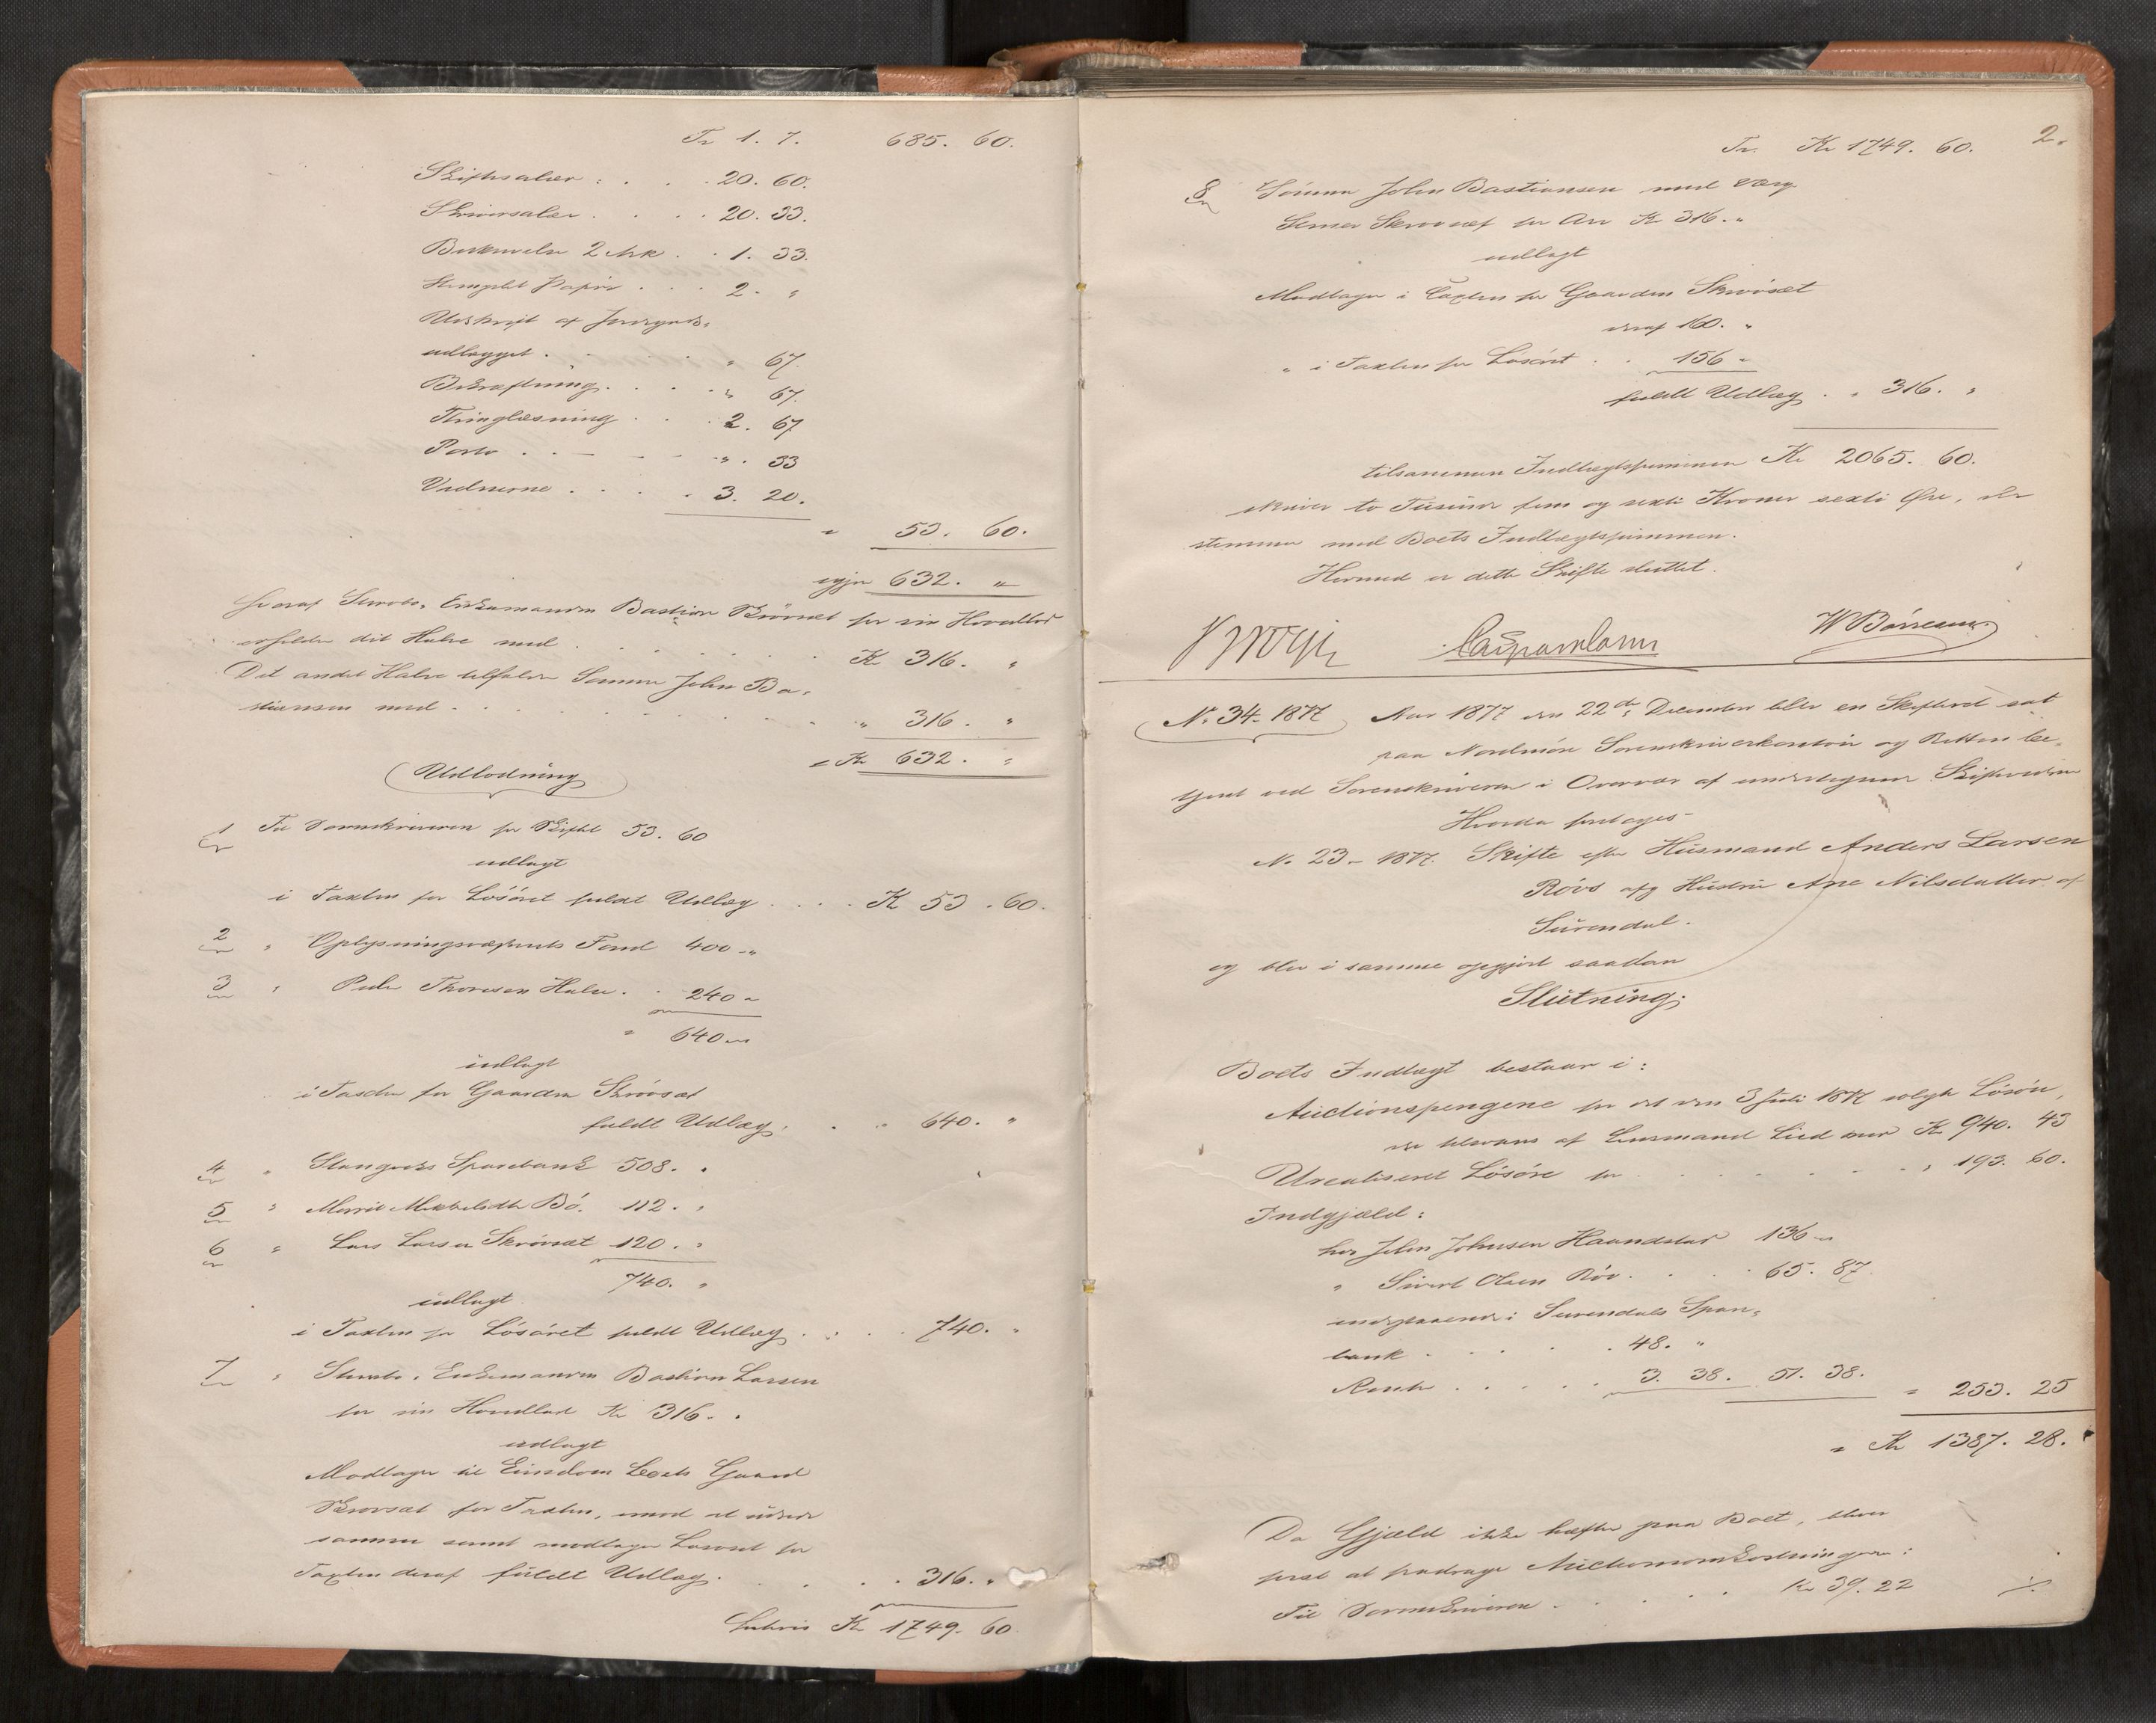 Tr 1. 7. 685. 60.
Skiftesalær . . . 20. 60.
Skriversalær . . . 20. 33.
Beskrivelse 2 Ark . . 1. 33.
Stemplet Papir . . . 2. "
Udskrift af Jordgods-
udlægget . . . " 67.
Bekræftning . . . " 67.
Thinglæsning . . 2. 67
Porto . . . " . 33
Vidnerne . . . . 3. 20.
" 53. 60.
igjen 632. "
hvoraf Stervbo- Enkemanden Bastian Skrövset for sin Hovedlod
erholder det Halve med . . . Kr 316. "
Det andet Halve tilfalder Sönnen John Ba-
stiansen med . . . " 316. "
= Kr 632. "
Udlodning
1 Til Sorenskriveren for Skiftet 53. 60
udlagt
i Taxten for Lösöret fuldt Udlæg . . . . Kr 53. 60.
2 " Oplysningsvæsenets Fond 400 "
3 " Peder Thoresen Halse . . 240 "
= 640 "
udlagt
i Taxten for Gaarden Skrövset
fuldt Udlæg . . . 640. "
4 " Stangviks Sparebank 508. "
5 " Marrit Mikkelsdtr Bö. 112. "
6 " Lars Larsen Skrövset 120. "
740. "
udlagt
i Taxten for Lösöret fuldt Udlæg . . . . 740. "
7 " Stervbo- Enkemanden Bastian Larsen
for sin Hovedlod Kr 316. "
udlagt
Modtager til Eiendom Boets Gaard
Skrövset for Taxten, imod at udrede
samme samt modtager Lösöret for
Taxten deraf fuldt Udlæg . . . . 316. "
Latus Kr 1749. 60
2.
Tr. Kr 1749. 60.
8 Sönnen John Bastiansen med Værge
Skrövset for Arv Kr 316. "
udlagt
Modtager i Taxten for Gaarden Skrövset
deraf 160. "
" i Taxten for Lösöret . . 156 "
fuldt Udlæg . " 316. "
tilsammen Indtægtssummen Kr 2065. 60.
skriver to Tusinde fem og sexti Kroner sexti Øre, der
stemmer med Boets Indtægtssummen.
Hermed er dette Skifte sluttet.
W Börresen
No 34 - 1877 Aar 1877 den 22de December blev en Skifteret sat
paa Nordmöre Sorenskriverkontoir og Retten be-
tjent ved Sorenskriveren i Overvær af undertegnede Skiftevidner
Hvorda foretoges -
No 23 - 1877. Skifte efter Husmand Anders Larsen
Rövs afg Hustru Ane Nilsdatter af
Surendal.
og blev i samme opgjort saadan
Slutning:
Boets Indtægt bestaar i:
Auctionspengene for det den 3 Juli 1877 solgte Lösöre,
der tilsvares af Lensmand Lied med Kr 940. 43
Urealiseret Lösöre for . . . " 193. 60.
Indgjæld:
hos John Johnsen Haandstad 136 "
" Sivert Olsen Röv . . . 65. 87.
indestaaende i Surendals Spare-
bank . . . . 48. "
Rente . . . . 3. 38. 51. 38.
= 253. 25
= Kr 1387. 28.
Da Gjæld ikke hæfter paa Boet, bliver
först at fradrage Auctionsomkostningerne:
Til Sorenskriveren . . . . Kr 39. 22 ./.